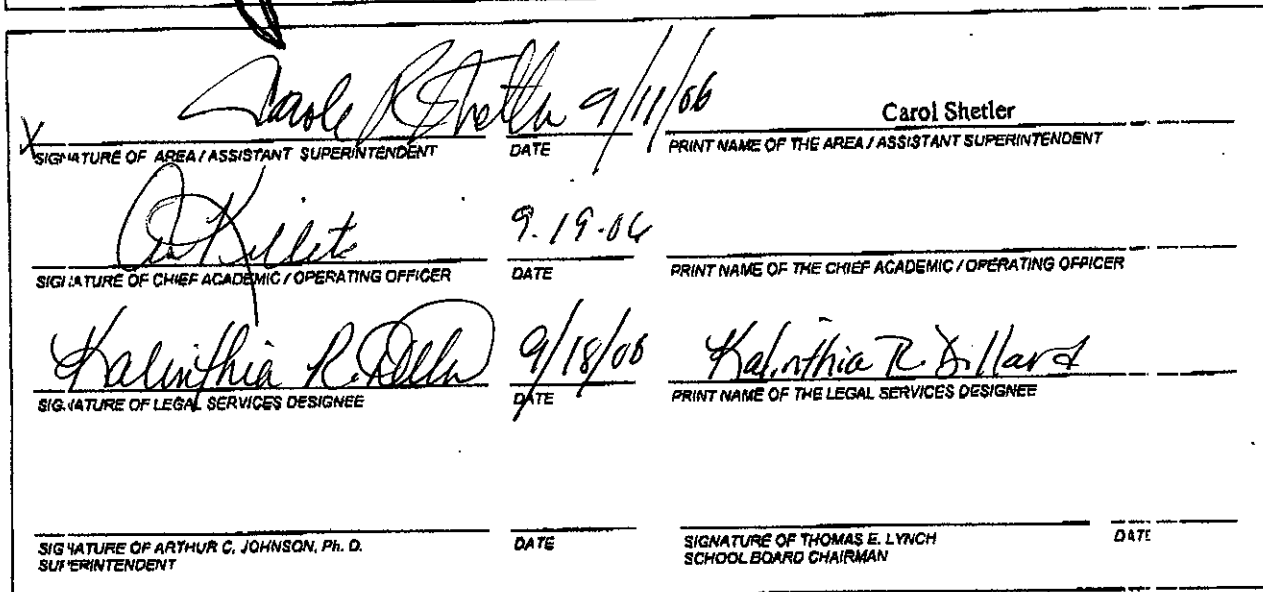 Carole R Shetler 9/11/06 Carol Shetler
X SIGNATURE OF AREA / ASSISTANT SUPERINTENDENT DATE PRINT NAME OF THE AREA / ASSISTANT SUPERINTENDENT
9.19.06
SIGNATURE OF CHIEF ACADEMIC / OPERATING OFFICER DATE PRINT NAME OF THE CHIEF ACADEMIC / OPERATING OFFICER
Kalinthia R. Dillard 9/18/06 Kalinthia R. Dillard
SIGNATURE OF LEGAL SERVICES DESIGNEE DATE PRINT NAME OF THE LEGAL SERVICES DESIGNEE
SIGNATURE OF ARTHUR C. JOHNSON, Ph. D. DATE SIGNATURE OF THOMAS E. LYNCH DATE
SUPERINTENDENT SCHOOL BOARD CHAIRMAN